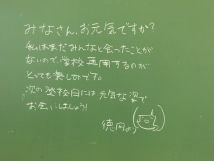 みなさん、お元気ですか?
私はまだみんなと会ったことが
ないので、学校再開するのが
とっても楽しみです。
次の登校日には元気な姿で
お会いしましょう!
徳岡より